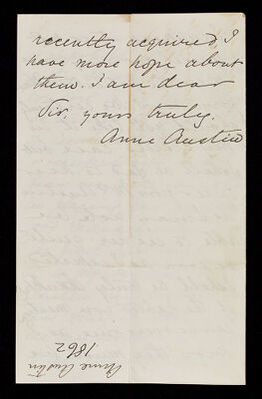 recently acquired, I
have more hope about
them. I am dear
Sir, yours truly.
Anne Austin
Anne Austin
1862